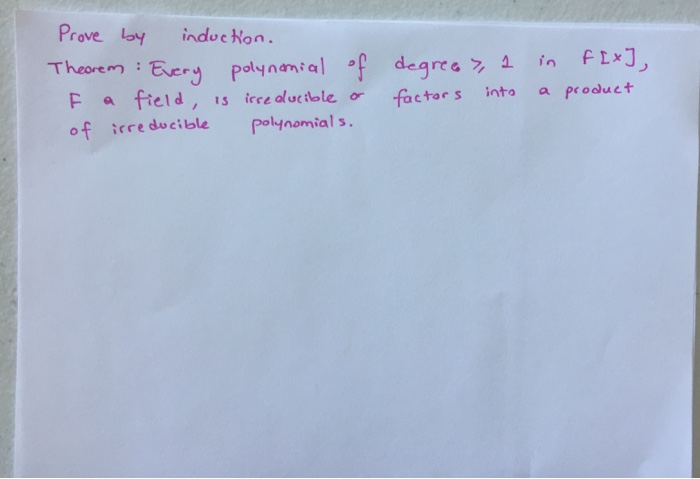 Prove by induction.
Theorem : Every polynomial of degree ⩾ 1 in F[x],
F a field, is irreducible or factors into a product
of irreducible polynomials.